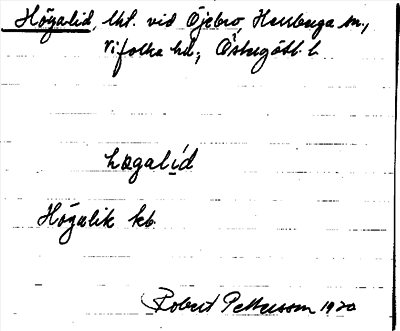 Högalid, lht. vid Öjebro, Herrberga sn,
Vifolka hd, Östergötl. l.
høgalíd
Högalik kb.
Robert Pettersson 1920